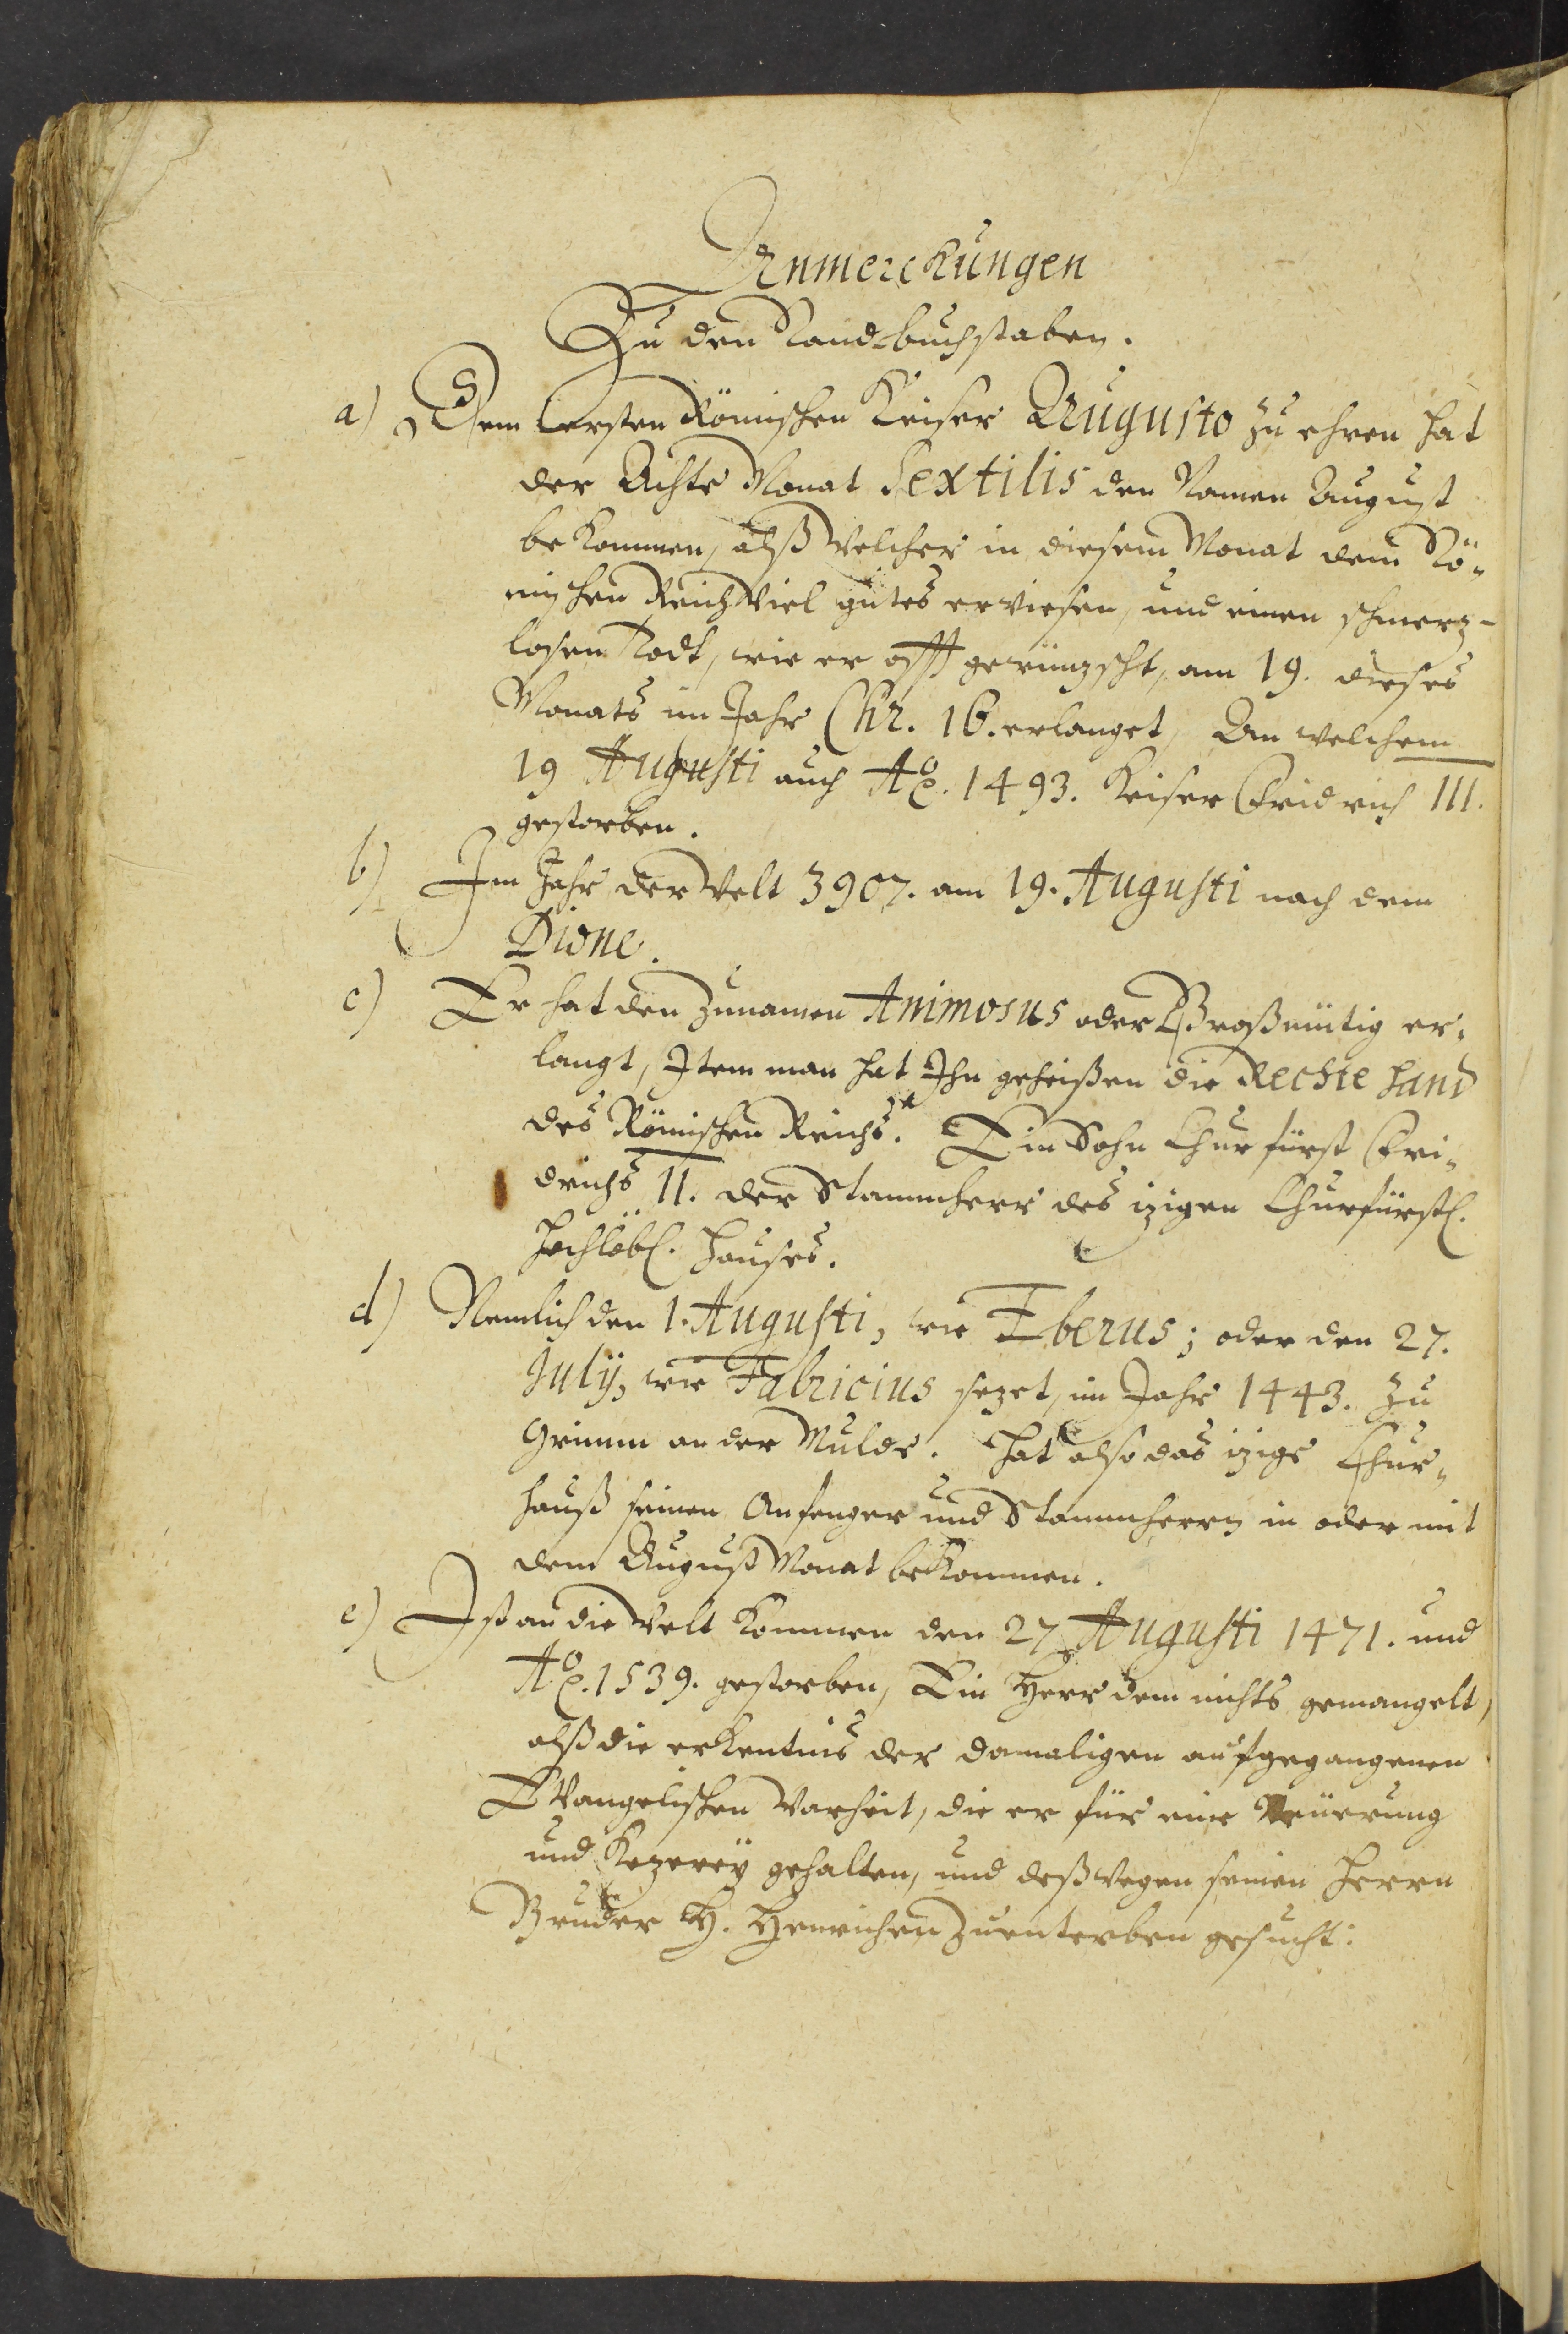 Anmerckungen
Zu den Randbuchstaben.
a) Dem Ersten Römischen Keiser Augusto zu ehren hat
der Achte Monat Sextilis den Namen August
bekommen, alß welcher in diesem Monat dem Rö-
mischen Reich viel gutes erwiesen, und einen schmerz-
losen Todt, wie er offt gewünzscht, am 19. dieses
Monats im Jahr Chr. 16. erlanget, An welchem
19 Augusti auch Ao. 1493. Keiser Fridrich III.
gestorben.
b) Im Jahr der Welt 3907. am 19. Augusti nach dem
Dione.
c) Er hat den Zunamen Animosus oder Großmütig er-
langt, Item man hat Ihn geheißen die Rechte Hand
des Römischen Reichs. Ein Sohn Churfürst Fri-
drichs II. der Stammherr des izigen Churfürstl.
Hochlöbl. Hauses.
d) Nemlich den 1. Augusti, wie Eberus; oder den 27.
Julij, wie Fabricius sezet, im Jahr 1443. Zu
Grimm an der Mulde. Hat also das izige Chur-
hauß seinen Anfenger und Stammherrn in oder mit
dem August Monat bekommen.
e) Ist an die Welt kommen den 27 Augusti 1471. und
Ao. 1539. gestorben, Ein Herr dem nichts gemangelt,
alß die erkentnis der damaligen aufgegangenen
Evangelischen Warheit, die er für eine Neüerung
und Kezereÿ gehalten, und deßwegen seinen Herrn
Bruder H. Henrichen zuenterben gesucht: